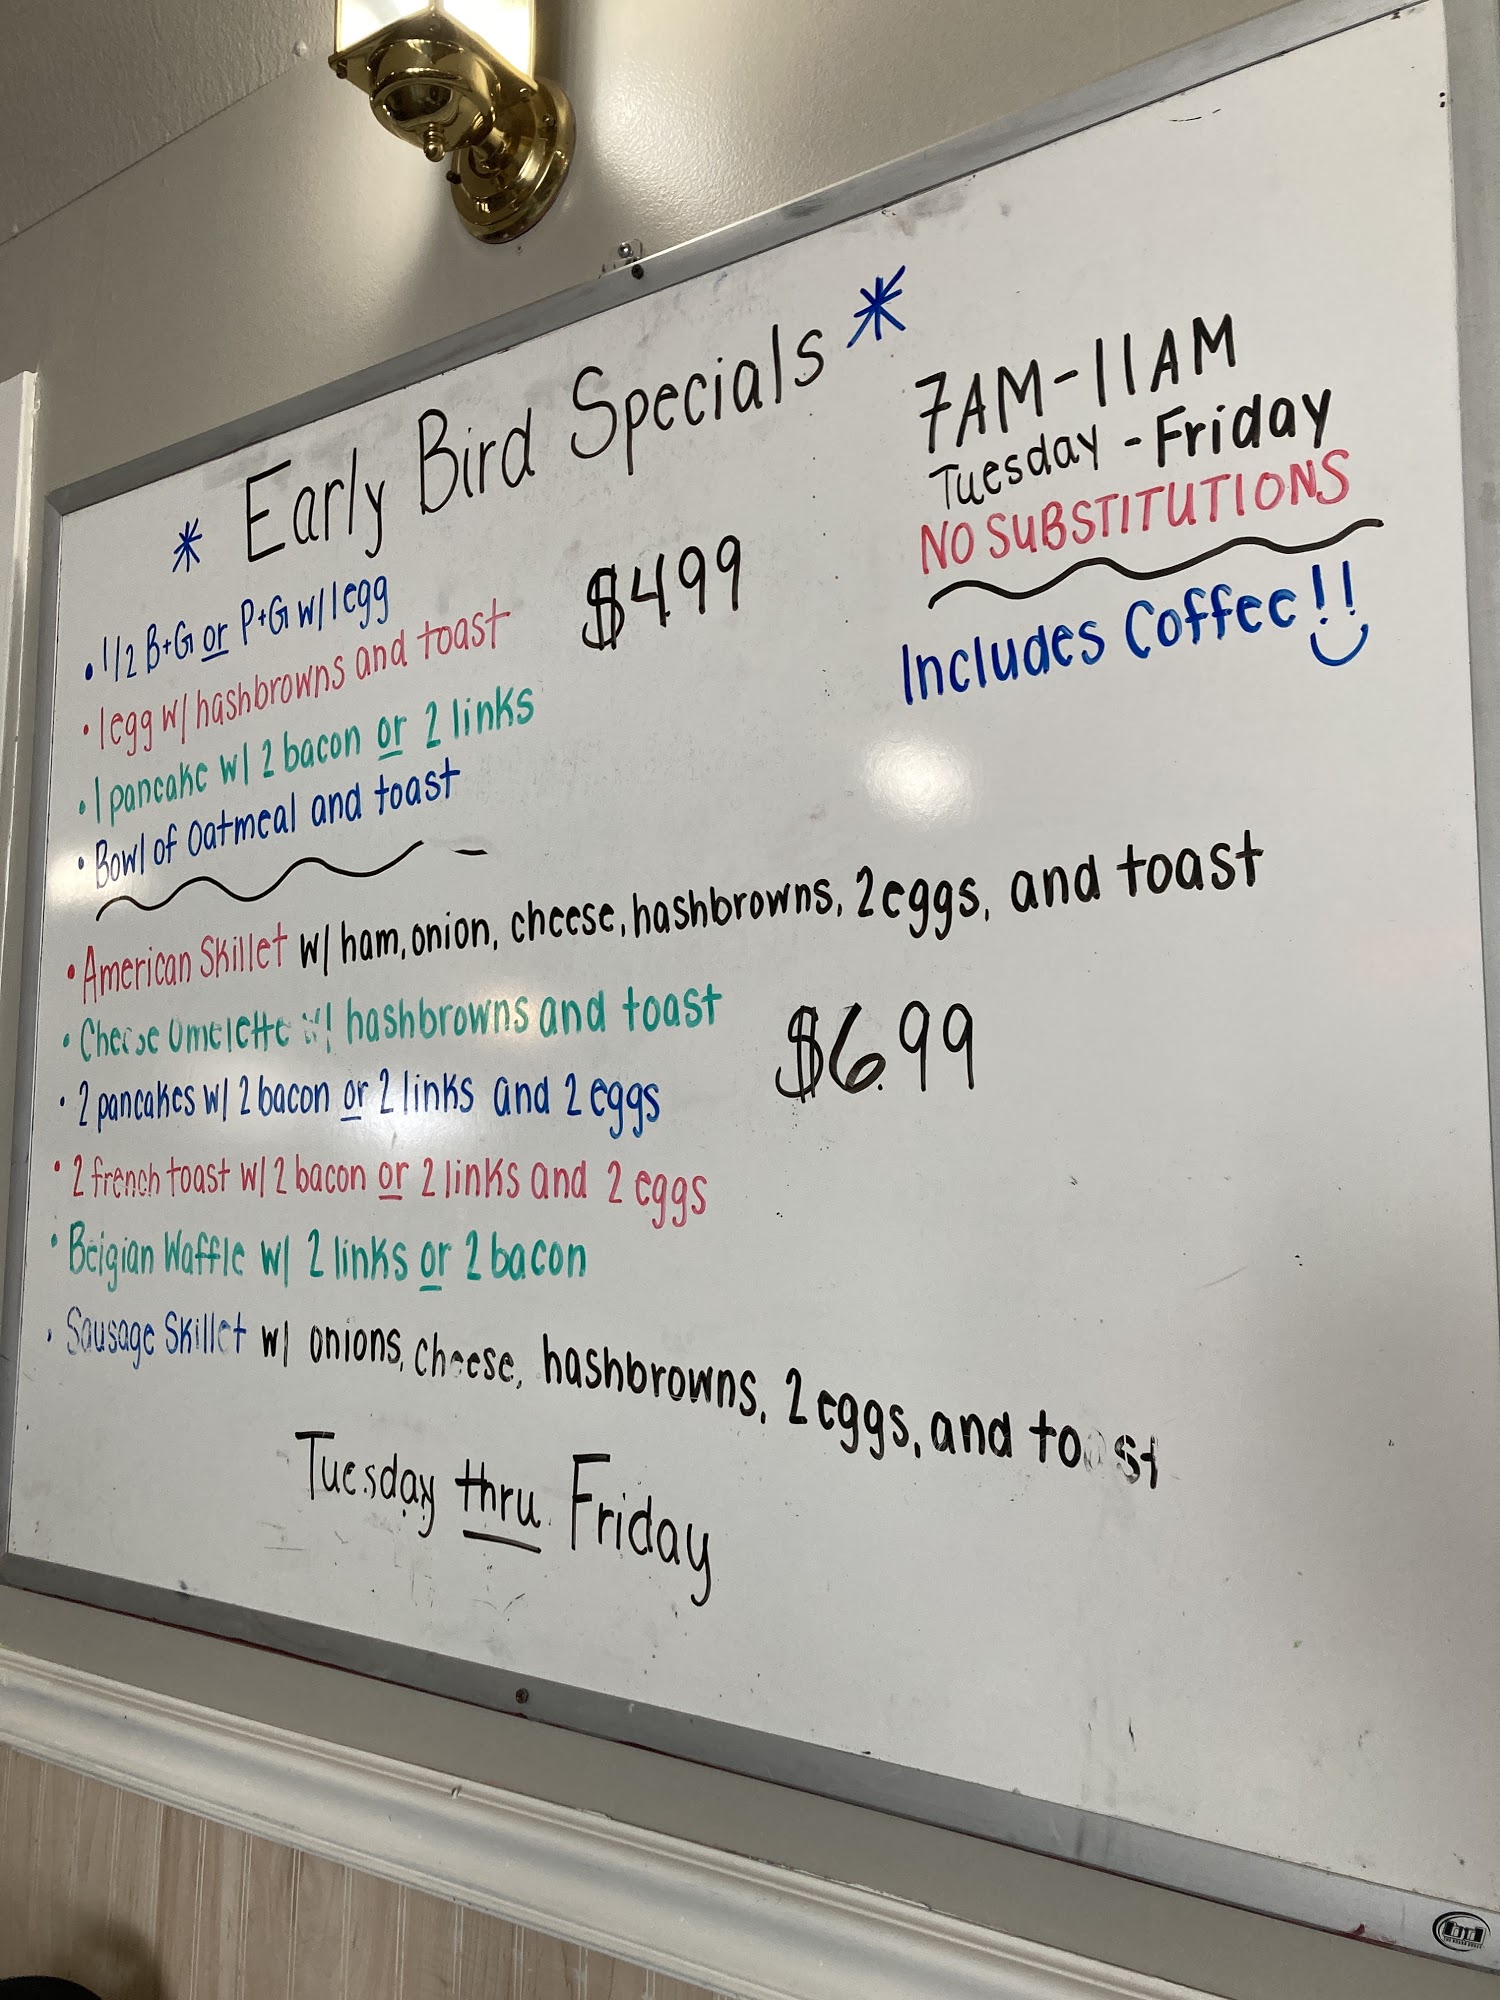 * Early Bird Specials *
7AM-11AM
Tuesday - Friday
NO SUBSTITUTIONS
Includes Coffee!!
• 1/2 B+G or P+G w/ 1 egg
• 1 egg w/ hashbrowns and toast
• 1 pancake w/ 2 bacon or 2 links
• Bowl of Oatmeal and toast
$499
• American Skillet w/ ham, onion, cheese, hashbrowns, 2 eggs, and toast
• Cheese Omelette w/ hashbrowns and toast
• 2 pancakes w/ 2 bacon or 2 links and 2 eggs
• 2 french toast w/ 2 bacon or 2 links and 2 eggs
• Belgian Waffle w/ 2 links or 2 bacon
• Sausage Skillet w/ onions, cheese, hashbrowns, 2 eggs, and toast
$6.99
Tuesday thru Friday